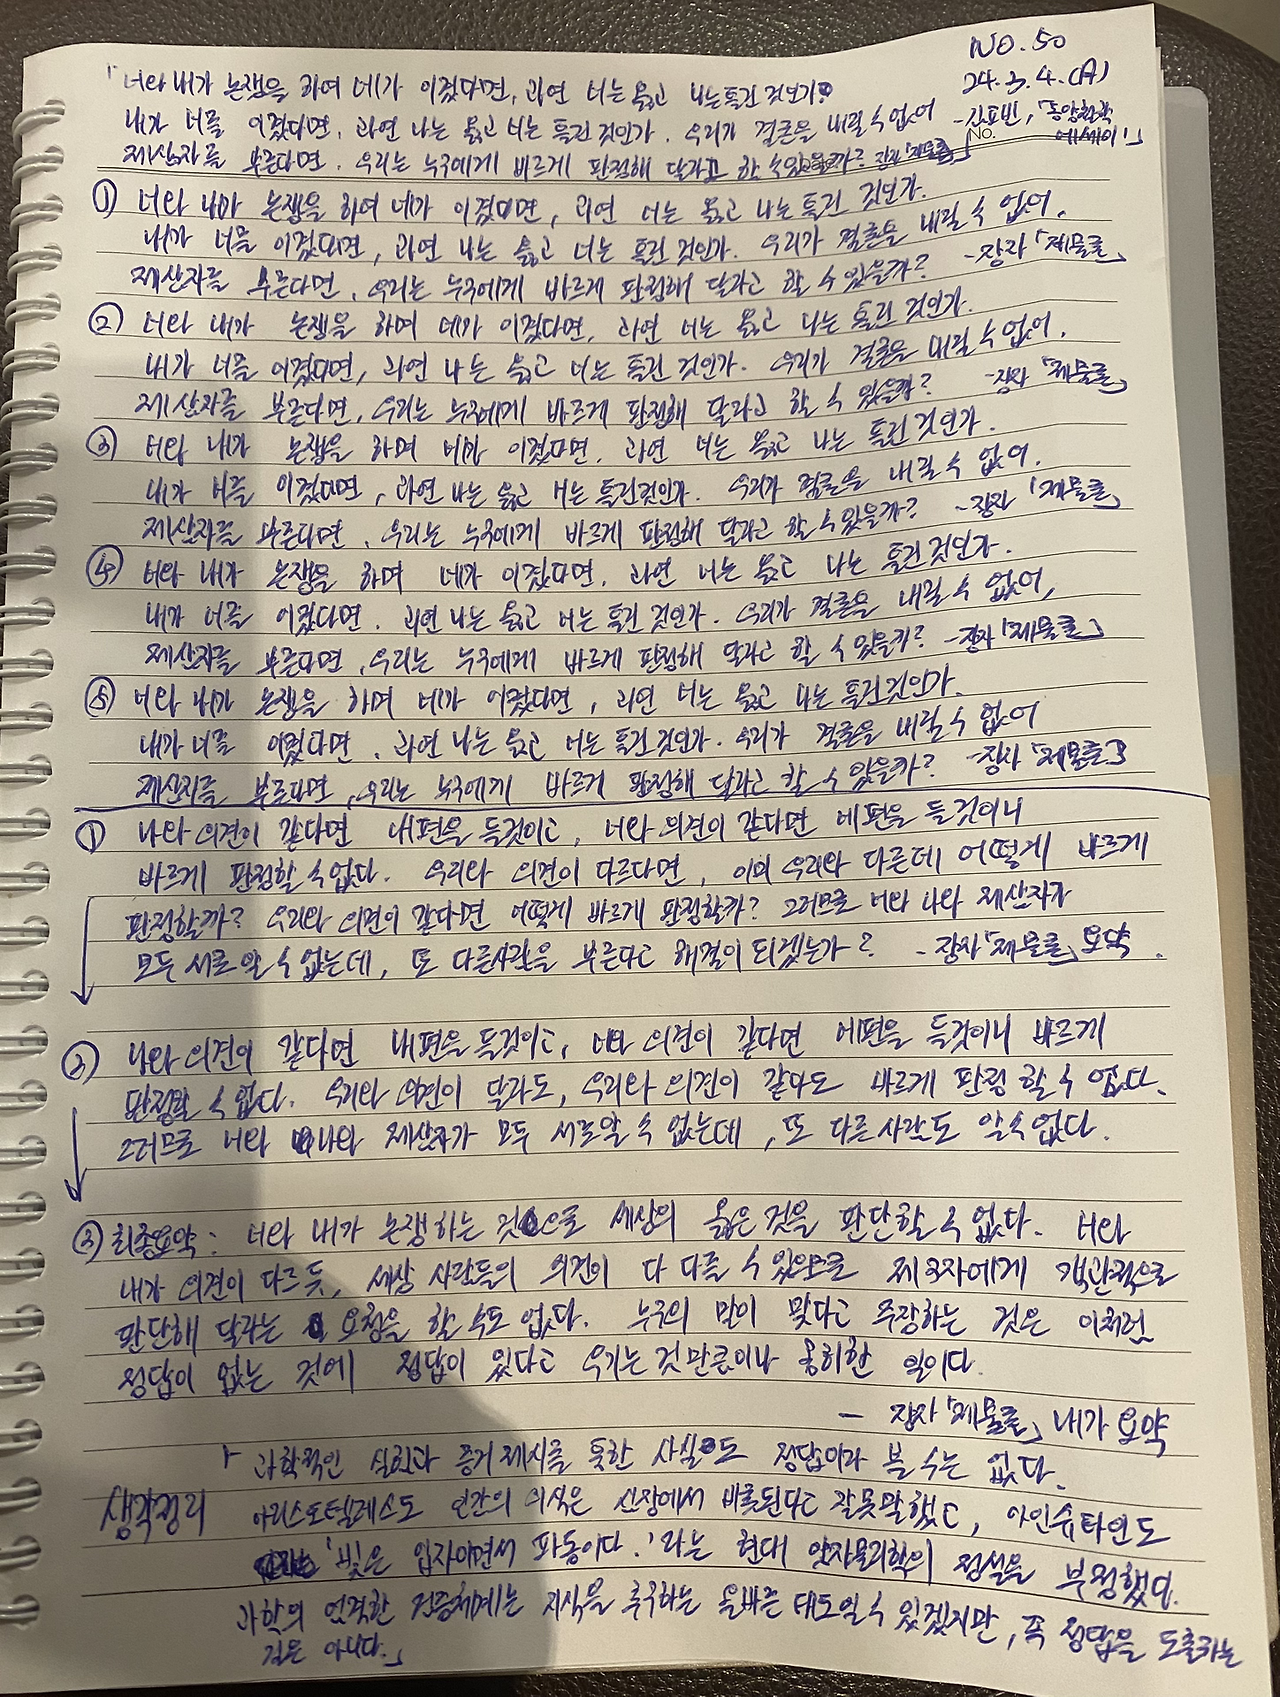 NO. 50
24. 3. 4. (A)
「너와 내가 논쟁을 하여 네가 이겼다면, 과연 너는 옳고 나는 틀린 것인가?
내가 너를 이겼다면, 과연 나는 옳고 너는 틀린 것인가. 우리가 결론을 내릴 수 없어 -김표빈, 「동양철학
No.
에세이1」
제삼자를 부른다면. 우리는 누구에게 바르게 판정해 달라고 할 수 있을까? 장자「제물론」
① 너와 내가 논쟁을 하여 네가 이겼다면, 과연 너는 옳고 나는 틀린 것인가.
내가 너를 이겼다면, 과연 나는 옳고 너는 틀린 것인가. 우리가 결론을 내릴 수 없어,
제삼자를 부른다면, 우리는 누구에게 바르게 판정해 달라고 할 수 있을까? -장자「제물론」
② 너와 내가 논쟁을 하여 네가 이겼다면, 과연 너는 옳고 나는 틀린 것인가.
내가 너를 이겼다면, 과연 나는 옳고 너는 틀린 것인가. 우리가 결론을 내릴 수 없어,
제삼자를 부른다면, 우리는 누구에게 바르게 판정해 달라고 할 수 있을까? -장자「제물론」
③ 너와 내가 논쟁을 하여 네가 이겼다면, 과연 너는 옳고 나는 틀린 것인가.
내가 너를 이겼다면, 과연 나는 옳고 너는 틀린것인가. 우리가 결론을 내릴 수 없어.
제삼자를 부른다면, 우리는 누구에게 바르게 판정해 달라고 할 수 있을까? -장자「제물론」
④ 너와 내가 논쟁을 하여 네가 이겼다면. 과연 너는 옳고 나는 틀린 것인가.
내가 너를 이겼다면. 과연 나는 옳고 너는 틀린 것인가. 우리가 결론을 내릴 수 없어,
제삼자를 부른다면, 우리는 누구에게 바르게 판정해 달라고 할 수 있을까? -장자「제물론」
⑤ 너와 내가 논쟁을 하여 네가 이겼다면, 과연 너는 옳고 나는 틀린것인가.
내가 너를 이겼다면. 과연 나는 옳고 너는 틀린 것인가. 우리가 결론을 내릴 수 없어
제삼자를 부른다면, 우리는 누구에게 바르게 판정해 달라고 할 수 있을까? -장자「제물론」
① 나와 의견이 같다면 내편을 들것이고, 너와 의견이 같다면 네편을 들 것이니
바르게 판정할 수 없다. 우리와 의견이 다르다면, 이미 우리와 다른데 어떻게 바르게
판정할까? 우리와 의견이 같다면 어떻게 바르게 판정할까? 그러므로 너와 나와 제삼자가
모두 서로 알 수 없는데, 또 다른사람을 부른다고 해결이 되겠는가? -장자「제물론」 요약.
② 나와 의견이 같다면 내편을 들것이고, 너와 의견이 같다면 네편을 들것이니 바르게
판정할 수 없다. 우리와 의견이 달라도, 우리와 의견이 같아도 바르게 판정 할 수 없다.
그러므로 너와 나와 제삼자가 모두 서로알 수 없는데, 또 다른 사람도 알 수 없다.
③ 최종요약: 너와 내가 논쟁하는 것으로 세상의 옳은 것을 판단할 수 없다. 너와
내가 의견이 다르듯, 세상 사람들의 의견이 다 다를 수 있으므로 제3자에게 객관적으로
판단해 달라는 요청을 할 수도 없다. 누구의 말이 맞다고 주장하는 것은 이처럼
정답이 없는 것에 정답이 있다고 우기는 것 만큼이나 옹히한 일이다.
- 장자「제물론」 내가 요약
생각정리
「과학적인 실험과 증거 제시를 통한 사실도 정답이라 볼 수는 없다.
아리스토텔레스도 인간의 의식은 심장에서 비롯된다고 잘못말했고, 아인슈타인도
'빛은 입자이면서 파동이다.'라는 현대 양자물리학의 정설을 부정했다.
과학의 엄격한 검증체계는 지식을 추구하는 올바른 태도일 수 있겠지만, 꼭 정답을 도출하는
것은 아니다.」